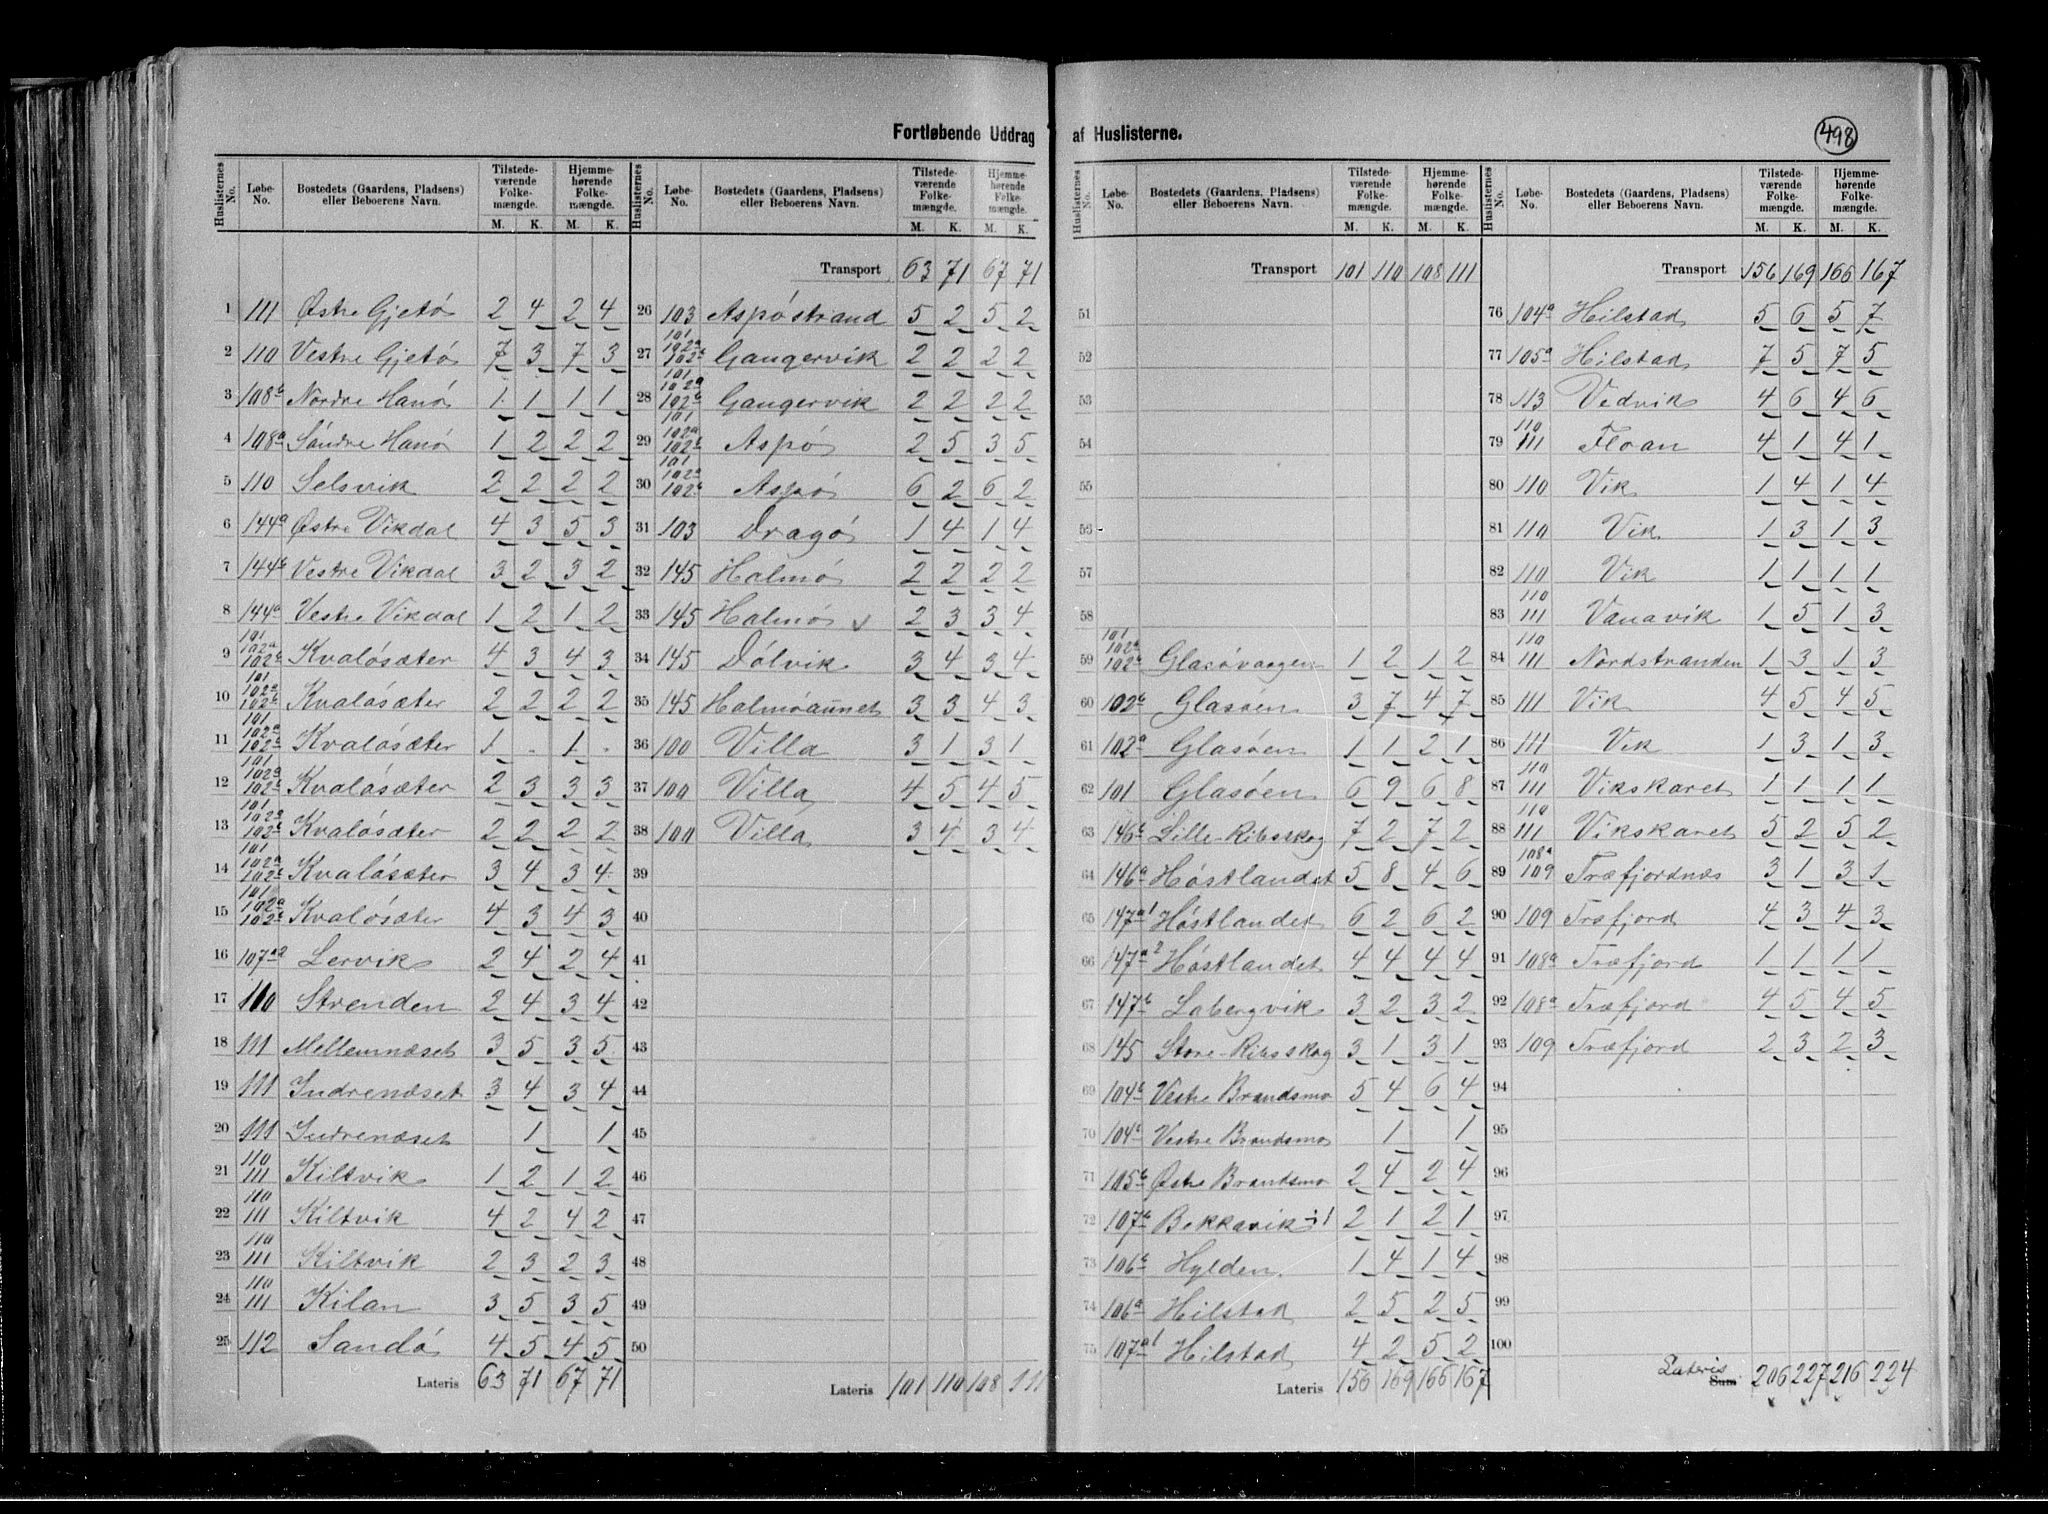 Fortløbende Uddrag af Huslisterne.
498
Huslisternes No. Løbe-No. Bostedets (Gaardens, Pladsens) eller Beboerens Navn. Tilstedeværende Folkemængde. M. K. Hjemmehørende Folkemængde. M. K.
1 111 Østre Gjetö 2 4 2 4
2 110 Vestre Gjetö 7 3 7 3
3 108b Nordre Hanö 1 1 1 1
4 108a Söndre Hanö 1 2 2 2
5 110 Selsvik 2 2 2 2
6 144a Østre Vikdal 4 3 5 3
7 144b Vestre Vikdal 3 2 3 2
8 144a Vestre Vikdal 1 2 1 2
9 101 102a 102b Kvalösæter 4 3 4 3
10 101 102a 102b Kvalösæter 2 2 2 2
11 101 102a 102b Kvalösæter 1 - 1 -
12 101 102a 102b Kvalösæter 2 3 3 3
13 101 102a 102b Kvalösæter 2 2 2 2
14 101 102a 102b Kvalösæter 3 4 3 4
15 101 102a 102b Kvalösæter 4 3 4 3
16 107a2 Lervik 2 4 2 4
17 110 Strenden 2 4 3 4
18 111 Mellemnæset 3 5 3 5
19 111 Indrenæset 3 4 3 4
20 111 Indrenæset 1 1
21 110 111 Kiltvik 1 2 1 2
22 110 111 Kiltvik 4 2 4 2
23 110 111 Kiltvik 2 3 2 3
24 110 111 Kilan 3 5 3 5
25 112 Sandö 4 5 4 5
Lateris 63 71 67 71
Huslisternes No. Løbe-No. Bostedets (Gaardens, Pladsens) eller Beboerens Navn. Tilstedeværende Folkemængde. M. K. Hjemmehørende Folkemængde. M. K.
Transport 63 71 67 71
26 103 Aspöstrand 5 2 5 2
27 101 102a 102b Gangervik 2 2 2 2
28 101 102a 102b Gangervik 2 2 2 2
29 101 102a 102b Aspö 2 5 3 5
30 101 102a 102b Aspö 6 2 6 2
31 103 Dragö 1 4 1 4
32 145 Halmö 2 2 2 2
33 145 Halmö v 2 3 3 4
34 145 Dölvik 3 4 3 4
35 145 Halmöaunet 3 3 4 3
36 100 Villa 3 1 3 1
37 100 Villa 4 5 4 5
38 100 Villa 3 4 3 4
39
40
41
42
43
44
45
46
47
48
49
50
Lateris 101 110 108 111
Huslisternes No. Løbe-No. Bostedets (Gaardens, Pladsens) eller Beboerens Navn. Tilstedeværende Folkemængde. M. K. Hjemmehørende Folkemængde. M. K.
Transport 101 110 108 111
51
52
53
54
55
56
57
58
59 101 102a 102b Glasövaagen 1 2 1 2
60 102b Glasöen 3 7 4 7
61 102a Glasöen 1 1 2 1
62 101 Glasöen 6 9 6 8
63 146b Lille-Ribsskog 7 2 7 2
64 146a Höstlandet 5 8 4 6
65 147a1 Höstlandet 6 2 6 2
66 147a2 Höstlandet 4 4 4 4
67 147b Labergvik 3 2 3 2
68 145 Store-Ribsskog 3 1 3 1
69 104b Vestre Brandsmo 5 4 6 4
70 104b Vestre Brandsmo 1 1
71 105b Østre Brandsmo 2 4 2 4
72 107b Bekkavik 2 1 2 1
73 106b Hylden 1 4 1 4
74 106a Hilstad 2 5 2 5
75 107a1 Hilstad 4 2 5 2
Lateris 156 169 166 167
Huslisternes No. Løbe-No. Bostedets (Gaardens, Pladsens) eller Beboerens Navn. Tilstedeværende Folkemængde. M. K. Hjemmehørende Folkemængde. M. K.
Transport 156 169 166 167
76 104a Hilstad 5 6 5 7
77 105a Hilstad 7 5 7 5
78 113 Vedvik 4 6 4 6
79 110 111 Floan 4 1 4 1
80 110 Vik 1 4 1 4
81 110 Vik 1 3 1 3
82 110 Vik 1 1 1 1
83 110 111 Vanavik 1 5 1 3
84 110 111 Nordstranden 1 3 1 3
85 111 Vik 4 5 4 5
86 111 Vik 1 3 1 3
87 110 111 Vikskaret 1 1 1 1
88 110 111 Vikskaret 5 2 5 2
89 108a 109 Træfjordnæs 3 1 3 1
90 109 Træfjord 4 3 4 3
91 108a Træfjord 1 1 1 1
92 108a Træfjord 4 5 4 5
93 109 Træfjord 2 3 2 3
94
95
96
97
98
99
100
Lateris Sum 206 227 216 224